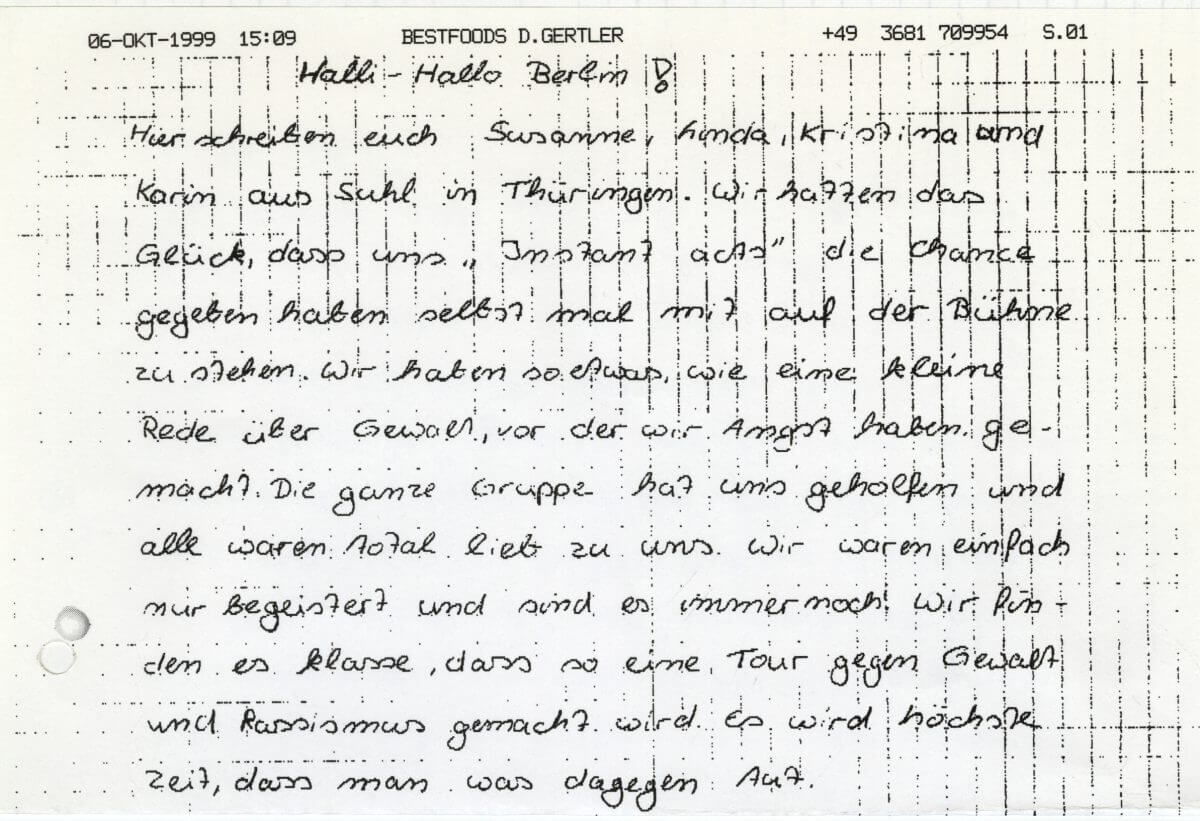 06-OKT-1999 15:09 BESTFOODS D.GERTLER +49 3681 709954 S.01
Halli-Hallo Berlin!
Hier schreiben euch Susanne, Linda, Kristina und
Karin aus Suhl in Thüringen. Wir hatten das
Glück, dass uns „Instant acts" die Chance
gegeben haben selbst mal mit auf der Bühne
zu stehen. Wir haben so etwas, wie eine kleine
Rede über Gewalt, vor der wir Angst haben ge-
macht. Die ganze Gruppe hat uns geholfen und
alle waren total lieb zu uns. Wir waren einfach
nur begeistert und sind es immer noch! Wir fin-
den es klasse, dass so eine Tour gegen Gewalt
und Rassismus gemacht wird. Es wird höchste
Zeit, dass man was dagegen tut.